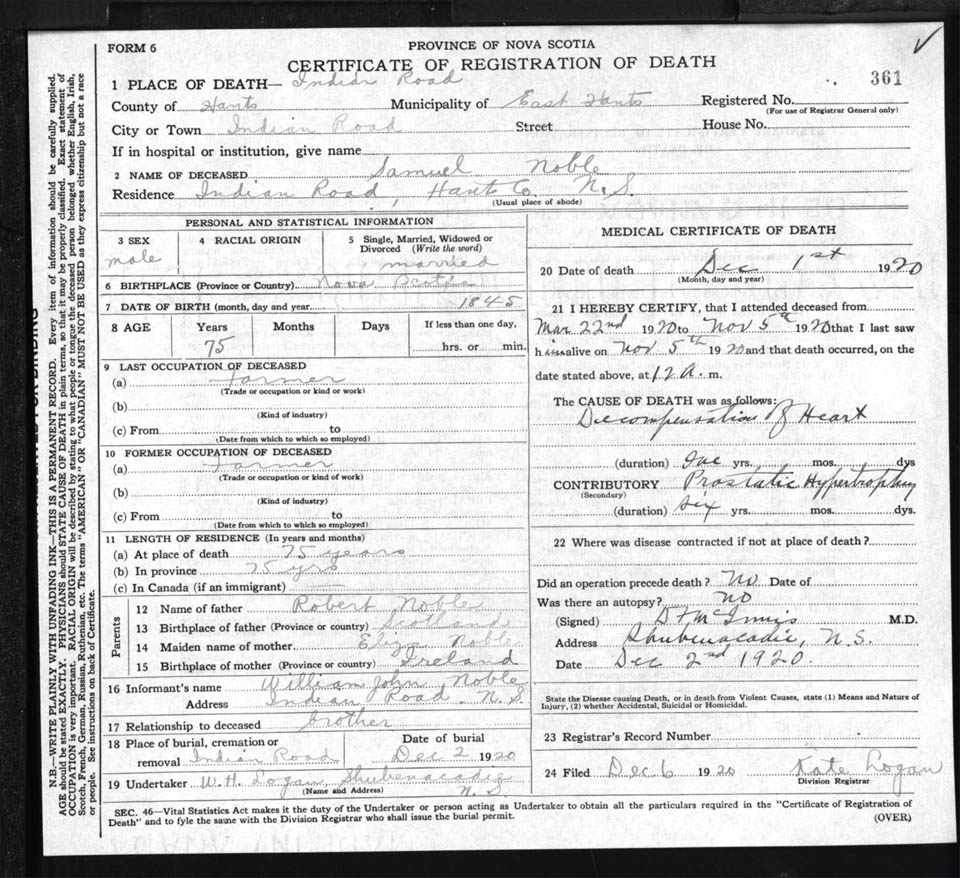 FORM 6
PROVINCE OF NOVA SCOTIA
CERTIFICATE OF REGISTRATION OF DEATH
361
1 PLACE OF DEATH— Indian Road
County of Hants Municipality of East Hants Registered No.
(For use of Registrar General only)
City or Town Indian Road Street House No.
If in hospital or institution, give name
2 NAME OF DECEASED Samuel Noble
Residence Indian Road, Hants Co. N.S.
(Usual place of abode)
PERSONAL AND STATISTICAL INFORMATION
3 SEX 4 RACIAL ORIGIN 5 Single, Married, Widowed or
Divorced (Write the word)
male married
6 BIRTHPLACE (Province or Country) Nova Scotia
7 DATE OF BIRTH (month, day and year) 1845
8 AGE Years Months Days If less than one day,
75 hrs. or min.
9 LAST OCCUPATION OF DECEASED
(a) Farmer
(Trade or occupation or kind or work)
(b)
(Kind of industry)
(c) From to
(Date from which to which so employed)
10 FORMER OCCUPATION OF DECEASED
(a) Farmer
(Trade or occupation or kind or work)
(b)
(Kind of industry)
(c) From to
(Date from which to which so employed)
11 LENGTH OF RESIDENCE (In years and months)
(a) At place of death 75 years
(b) In province 75 yrs
(c) In Canada (if an immigrant)
Parents
12 Name of father Robert Noble
13 Birthplace of father (Province or country) Scotland
14 Maiden name of mother Eliza Noble
15 Birthplace of mother (Province or country) Ireland
16 Informant's name William John Noble
Address Indian Road N.S.
17 Relationship to deceased brother
18 Place of burial, cremation or Date of burial
removal Indian Road Dec 2 1920
19 Undertaker W. H. Logan, Shubenacadie
(Name and Address) N.S
MEDICAL CERTIFICATE OF DEATH
20 Date of death Dec 1st 1920
(Month, day and year)
21 I HEREBY CERTIFY, that I attended deceased from
Mar 22nd 1920 to Nov 5th 1920 that I last saw
him alive on Nov 5th 1920 and that death occurred, on the
date stated above, at 12 A. m.
The CAUSE OF DEATH was as follows:
Decompensation of Heart
(duration) One yrs. mos. dys
CONTRIBUTORY Prostatic Hypertrophy
(Secondary)
(duration) six yrs. mos. dys.
22 Where was disease contracted if not at place of death?
Did an operation precede death? No Date of
Was there an autopsy? no
(Signed) D F McInnis M.D.
Address Shubenacadie, N.S.
Date Dec 2nd 1920.
State the Disease causing Death, or in death from Violent Causes, state (1) Means and Nature of
Injury, (2) whether Accidental, Suicidal or Homicidal.
23 Registrar's Record Number
24 Filed Dec 6 1920 Kate Logan
Division Registrar
SEC. 46—Vital Statistics Act makes it the duty of the Undertaker or person acting as Undertaker to obtain all the particulars required in the "Certificate of Registration of
Death" and to fyle the same with the Division Registrar who shall issue the burial permit. (OVER)
N.B.—WRITE PLAINLY WITH UNFADING INK—THIS IS A PERMANENT RECORD. Every item of information should be carefully supplied.
AGE should be stated EXACTLY. PHYSICIANS should STATE CAUSE OF DEATH in plain terms, so that it may be properly classified. Exact statement of
OCCUPATION is very important. RACIAL ORIGIN will be described by stating to what people or tongue the deceased person belonged, whether English, Irish,
Scotch, French, German, Russian, Ruthenian, etc. The terms "AMERICAN" OR "CANADIAN" MUST NOT BE USED as they express citizenship but not a race
or people. See instructions on back of Certificate.